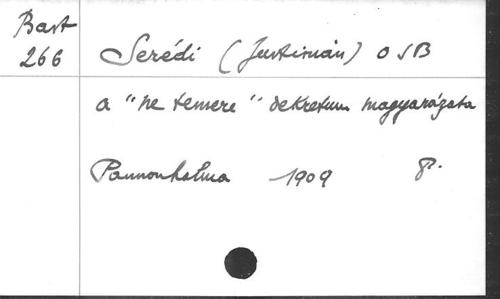 Bast
266
Serédi (Justinián) OSB
a "ne temere" dekretum magyarázata
Pannonhalma 1909 8°.